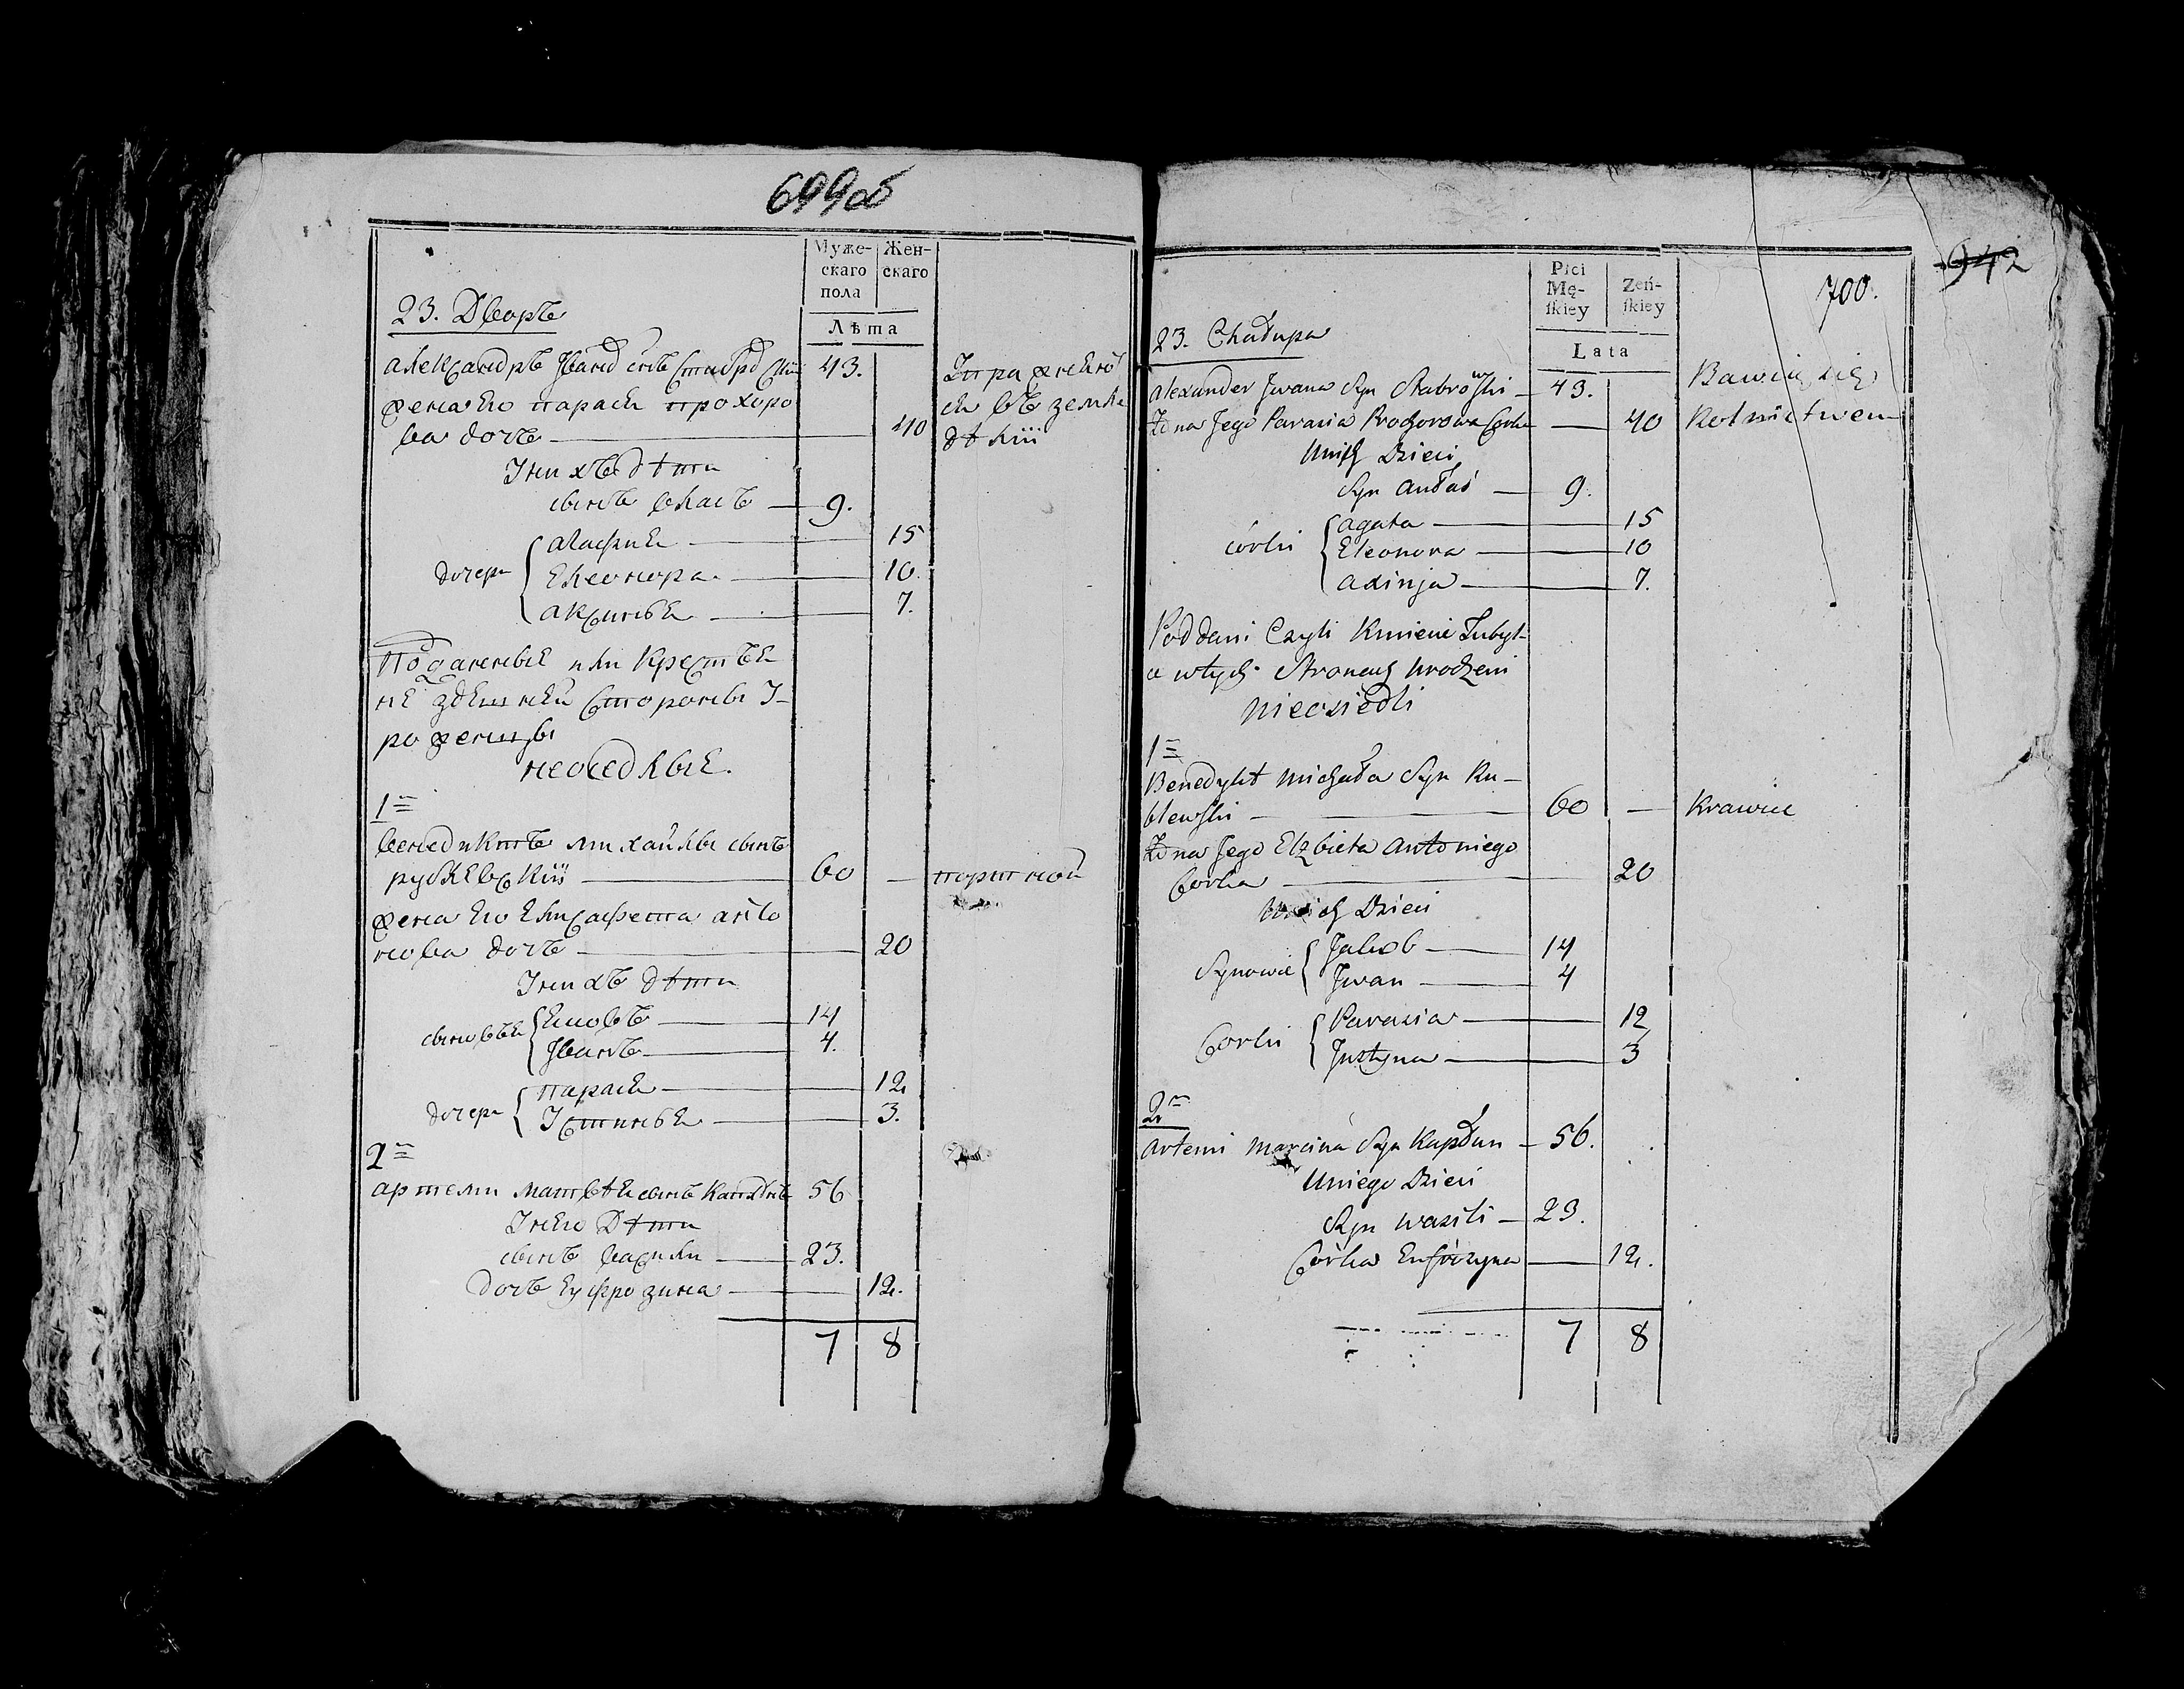 699об
Муже- Жен-
скаго скаго
пола
Лѣта
23. Дворъ
Александръ Иванъ снъ 43.
жена Его парася прохоро
ва дочъ 40
Уних дѣти
сынъ власъ 9.
дочери
Агафия 15
Елеонора 10.
Аксинья 7.
Упражнено
ся въ земле
дѣлии
Поданные или Крестья
не здешней Стороны У-
роженцы
неоседлые.
1
венедиктъ михайлы сынъ
рублевский 60 — портной
жена Его Елисафета анто
нова дочъ 20
Уних дѣти
сыновья
Яковъ 14
Иванъ 4.
дочери
парася 12
Устинья 3.
2
артеми матвѣя сынъ Капланъ 56
Унего Дѣти
сынъ василй 23.
Дочъ Еуфрозина 12.
7 8
942
700.
Płci Zeń-
Mę- skiey
skiey
Lata
23. Chałupa
Alexander Jwana Syn Stabrowski 43. Bawiią się
Zona Jego Parasia Prochorowa Corka 40 Rolnictwem
Unich Dzieci
Syn Aułaś 9.
córki
Agata 15
Eleonora 10
Axinja 7.
Poddani Czyli Kmiecie Tubyl-
a wtych Stronach Urodzeni
Nieosiedli
1
Benedykt Michała Syn Ru-
blewski 60 — Krawiec
Zona Jego Elzbieta Antoniego
Corka 20
Unich Dzieci
Synowie
Jakob 14
Jwan 4
Corki
Parasia 12
Justyna 3
2
Artemi Marcina Syn Kapłan 56.
Uniego Dzieci
Syn Wasili 23.
Córka Eufrozyna 12.
7 8